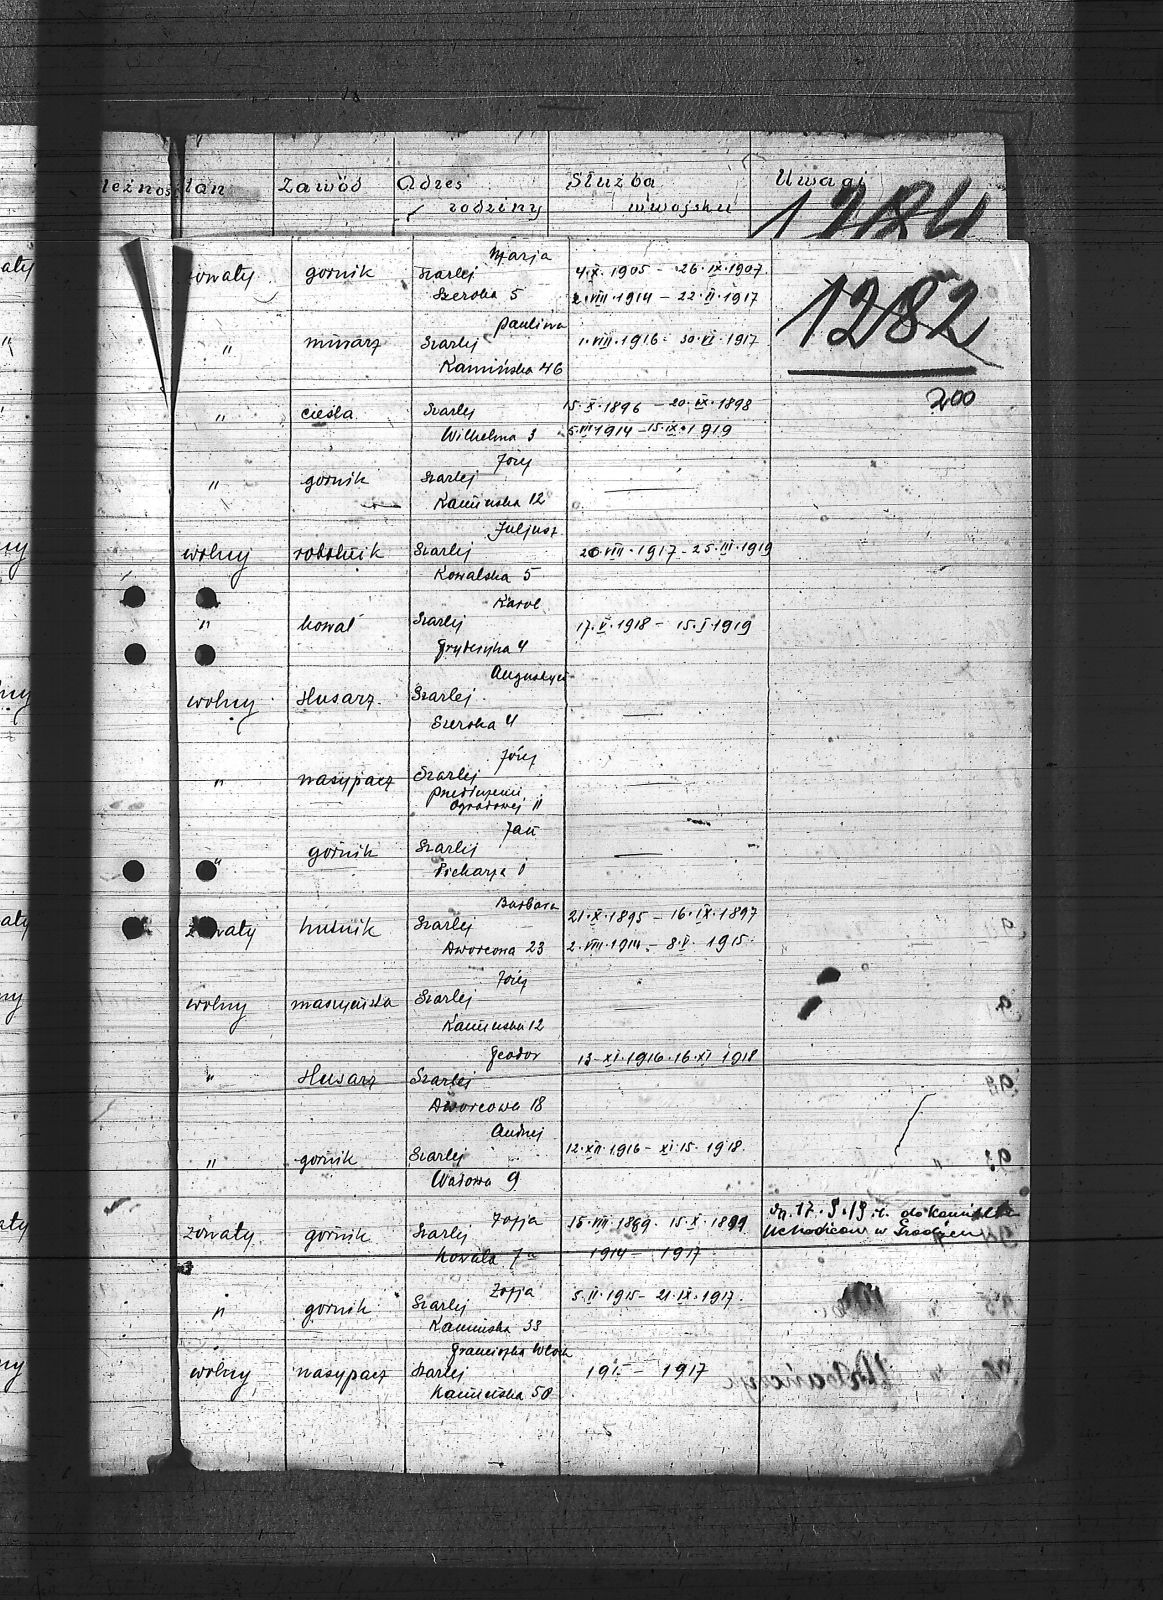 leżność
stan Zawód Adres Służba Uwagi
rodziny w wojsku
1284
Marja
żonaty górnik Szarlej 4.X.1905 - 26.IX.1907
Szeroka 5 2.VIII.1914 - 22.II.1917
1282
Paulina
" murarz Szarlej 1.VIII.1916 - 30.VI.1917
Kamińska 46
200
" cieśla Szarlej 15.X.1896 - 20.IX.1898
Wilhelma 3 5.III.1914 - 15.IX.1919
Józef
" górnik Szarlej —
Kamińska 12
Juljusz
wolny robotnik Szarlej 20.VIII.1917 - 25.III.1919
Kowalska 5
Karol
" kowal Szarlej 17.V.1918 - 15.I.1919
4
Augustyn
wolny ślusarz Szarlej
Szeroka 4 —
Józef
" nasypacz Szarlej —
Ogrodowej 11
Jan
" górnik Szarlej —
Piekarska 1
Barbara
żonaty hutnik Szarlej 21.X.1895 - 16.IX.1897
Dworcowa 23 2.VIII.1914 - 8.V.1915
Józef
wolny maszynista Szarlej —
Kamińska 12
Teodor 13.XI.1916.16.XI 1918
" ślusarz Szarlej
Dworcowa 18
Andrzej
" górnik Szarlej 12.XII.1916 - XI.15.1918.
Wałowa 9
Zofja Dn. 17.9.19 r. do
żonaty górnik Szarlej 15.VIII.1889. 15.X.1899 Uchodźców w
7a 1914 - 1917
Zofja
" górnik Szarlej 5.II.1915 - 21.IX.1917.
Kamińska 33
Franciszka
wolny nasypacz Szarlej - 1917
Kamińska 50